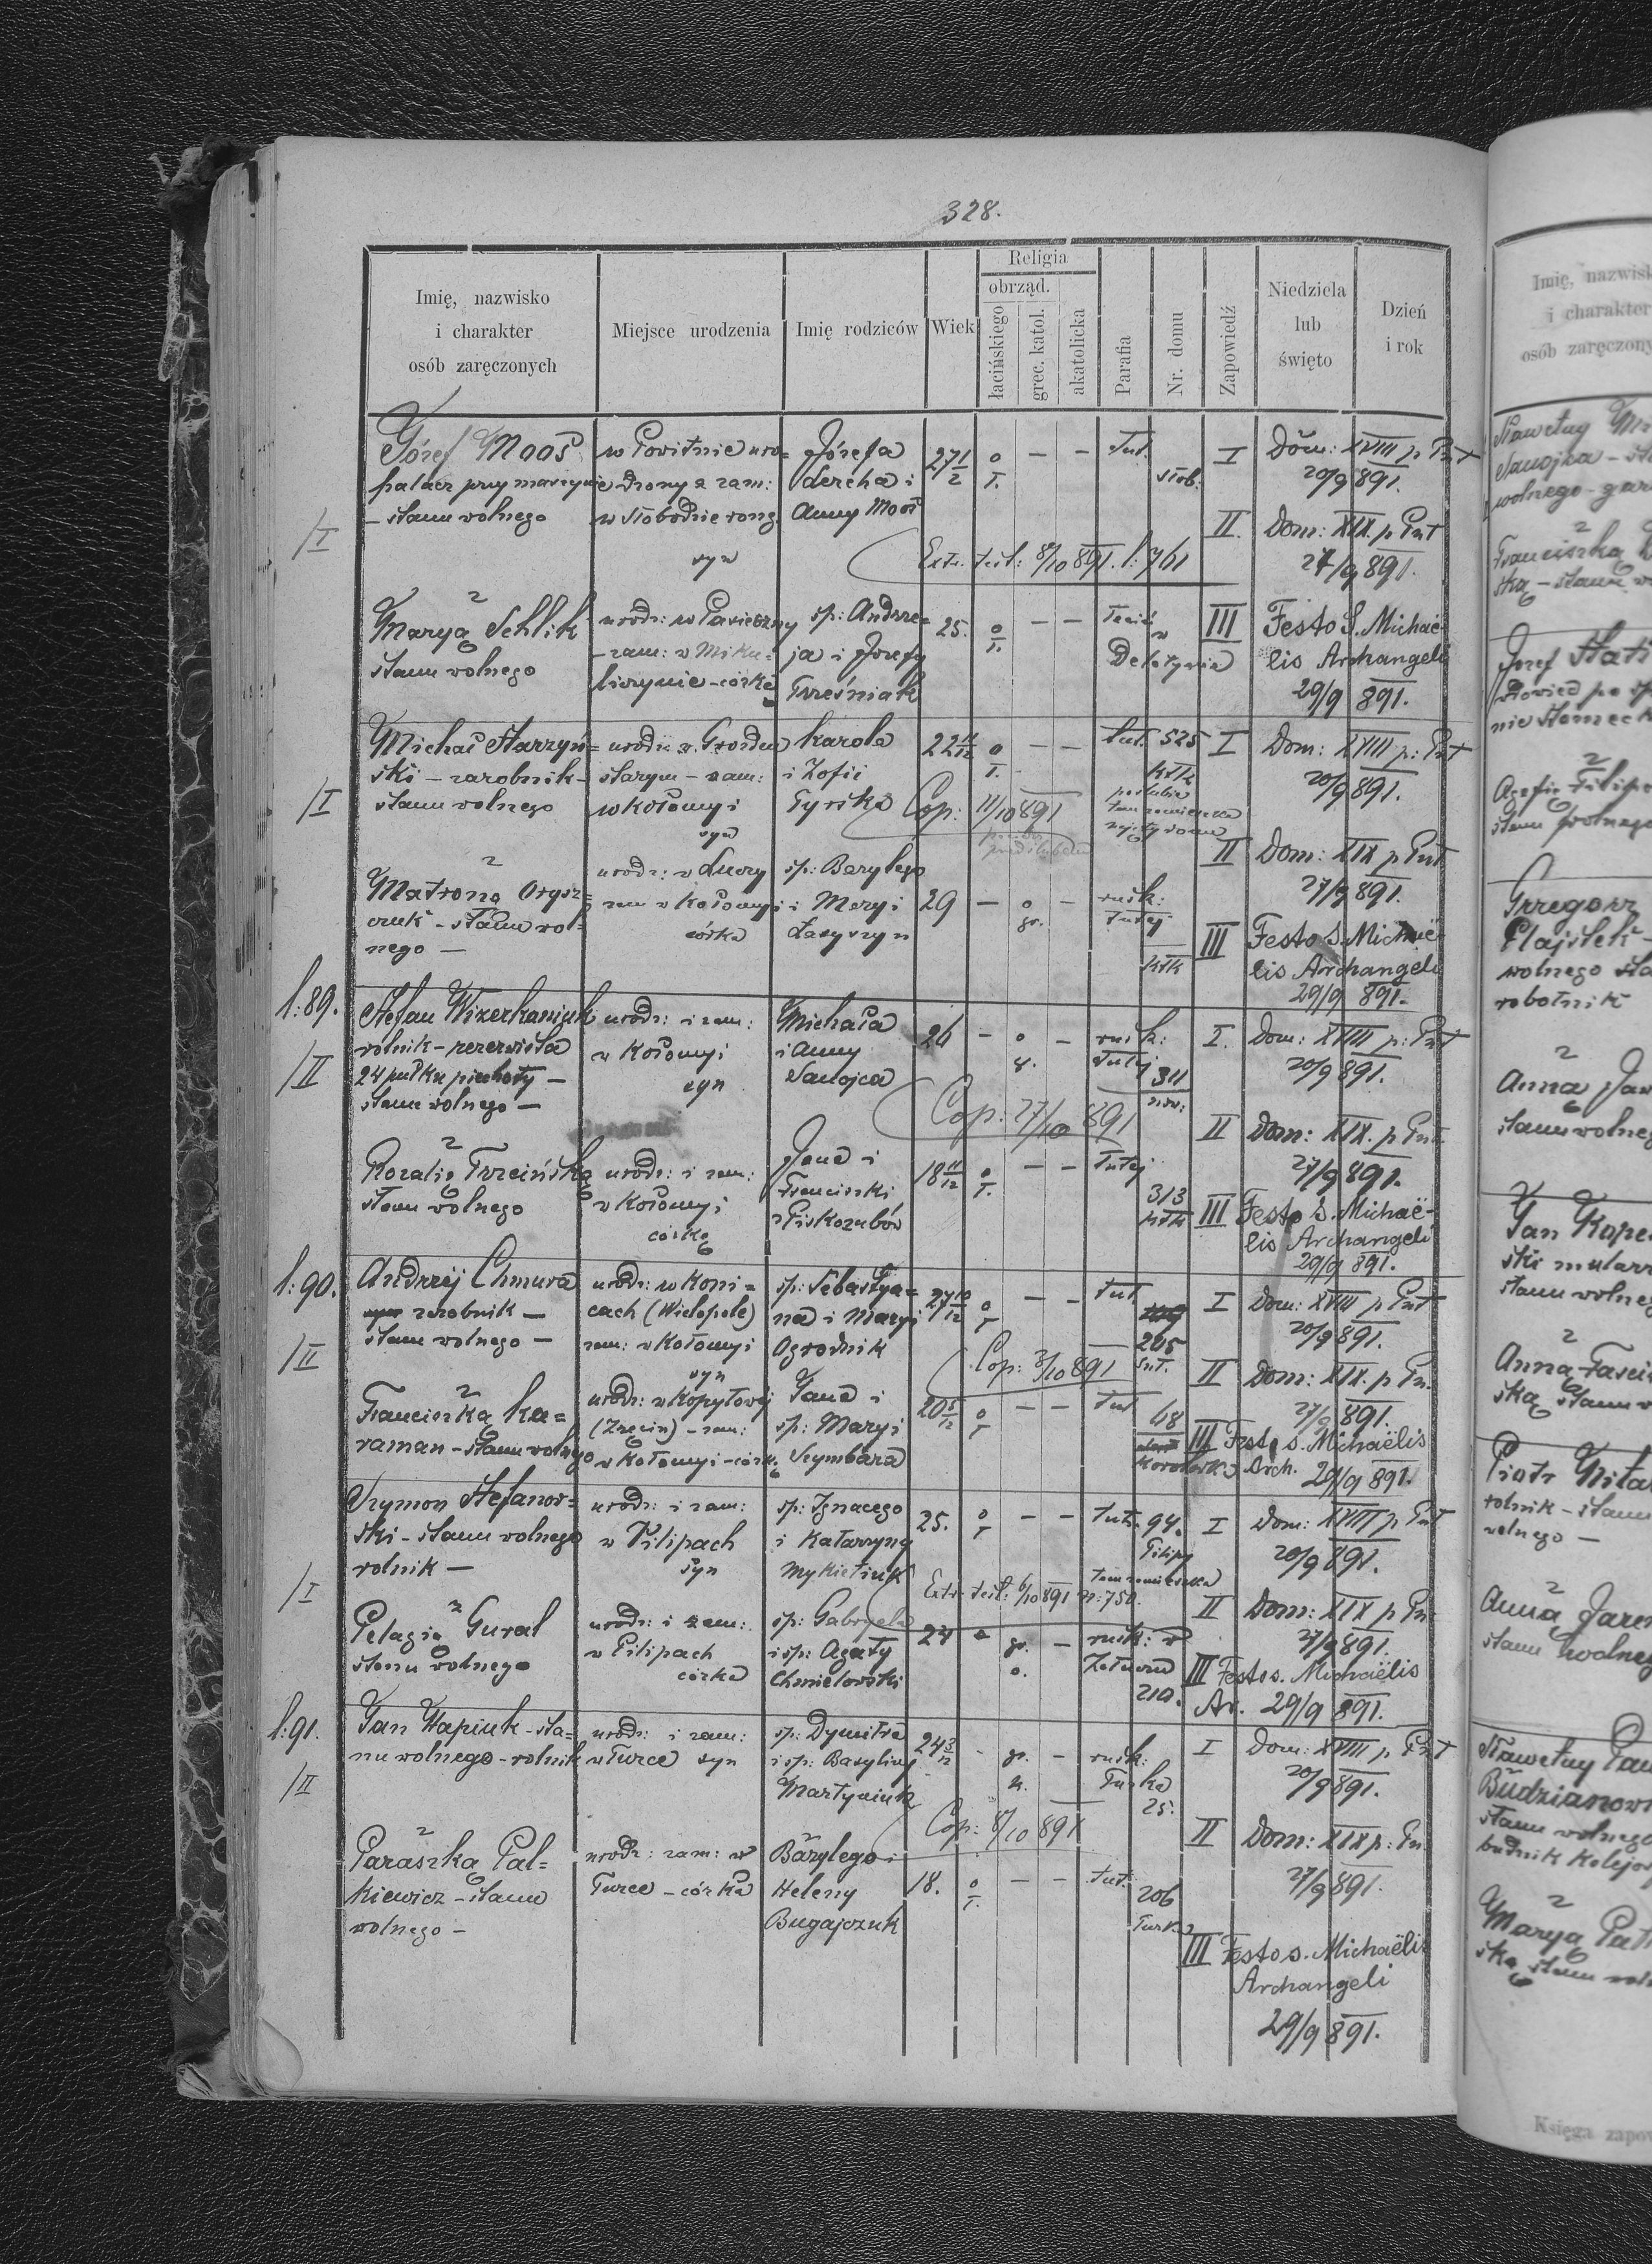 328.
Imię, nazwisko
i charakter
osób zaręczonych
Miejsce urodzenia
Imię rodziców
Wiek
Religia
obrząd.
łacińskiego
grec. katol.
akatolicka
Parafia
Nr. domu
Zapowiedź
Niedziela
lub
święto
Dzień
i rok
/I
Józef Moos
palacz przy maszynie
- stanu wolnego
w Powitnie uro=
dzony a zam:
w Słobodzie rong.
syn
Józefa
Lercha i
Anny Moos
27 1/2
o
ł.
— —
Tut.
Słob.
I Dom: XVIII p Pnt
20/9 891.
II. Dom: XIX. p Pnt
27/9 891.
Extr. test: 8/10 891. l: 761
2
Marya Schlik
stanu wolnego
urodz: w Pasieczny
- zam: w Miku=
liczynie - córka
śp: Andrze=
ja i Józefy
Trześniak
25.
o
ł.
— —
Łaciń
w
Delatynie
III Festo S. Michaë-
lis Archangeli
29/9 891.
/I
Michał Starzyń=
ski - zarobnik -
stanu wolnego
urodz: w Gwoźdzu
starym - zam:
w Kołomyi
syn
Karola
i Zofii
Tyrska
22 11/12
o
ł.
— —
tut. 525
I Dom: XVIII p: Pnt
20/9 891.
Cop: 11/10 891
II Dom: XIX p Pnt.
27/9 891.
2
Matrona Orysz=
czuk - stanu wol=
nego —
urodz: w Luczy
zam w Kołomyi
córka
śp: Bazylego
i Maryi
Łasyszyn
29
— o —
gr.
rusk:
tutej
III Festo S. Michaë-
lis Archangeli
29/9 891.
l: 89.
/II
Stefan Wizerkaniuk
rolnik - rezerwista
24 pułku piechoty —
stanu wolnego —
urodz: i zam:
w Kołomyi
syn
Michała
i Anny
Sanojca
26
— o —
g.
rusk:
tutej
311
I. Dom: XVIII p: Pnt
20/9 891.
Cop: 27/10 891
II Dom: XIX. p Pnt.
27/9 891.
2
Rozalia Trzcińska
stanu wolnego
urodz: i zam:
w Kołomyi
córka
Jana i
Franciszki
z Piskozubów
18 11/12
o
ł.
— —
Tutej
313
III Festo S. Michaë-
lis Archangeli
29/9 891.
l: 90.
/II
Andrzej Chmura
zarobnik —
stanu wolnego —
urodz: w Koni=
cach (Wielopole)
zam: w Kołomyi
syn
śp: Sebastya=
na i Maryi
Ogrodnik
27 10/12
o
ł
— —
tut.
205
I Dom: XVIII p Pnt
20/9 891.
Cop: 3/10 891
II Dom: XIX. p Pn.
27/9 891.
2
Franciszka Ka=
raman - stanu wolnego
urodz: w Kopytowej
(Zręcin) - zam:
w Kołomyi - córka
Jana i
śp: Maryi
Szymbara
20 5/12
o
ł
— —
tut
68
Korolówka
III Festo s. Michaëlis
Arch. 29/9 891.
/I
Szymon Stefanow=
ski - stanu wolnego
rolnik —
urodz: i zam:
w Pilipach
syn
śp: Ignacego
i Katarzyny
Mykietiuk
25.
o
ł
— —
tut. 94.
Pilipy
tam zamieszka
I Dom: XVIII p Pnt
20/9 891.
Extr. test: 6/10 891 n: 750.
II Dom: XIX p Pn.
27/9 891.
2
Pelagia Gural
stanu wolnego
urodz: i zam:
w Pilipach
córka
śp: Gabryela
i śp: Agaty
Chmielowski
24
gr.
o.
—
rusk: w
210.
III Festo s. Michaëlis
Ar. 29/9 891.
l: 91.
/II
Jan Hapiuk - sta=
nu wolnego - rolnik
urodz: i zam:
w Turce syn
śp: Dymitra
i śp: Basyliny
Martyniuk
24 3/12
- gr. -
rusk:
Turka
25.
I Dom: XVIII p Pnt
20/9 891.
Cop: 8/10 891
II Dom: XIX p: Pn.
27/9 891.
2
Paraszka Pal=
kiewicz - stanu
wolnego —
urodz: zam: w
Turce - córka
Bazylego i
Heleny
Bugajczuk
18.
o
ł.
— —
tut.
206
Turka
III Festo s. Michaëlis
Archangeli
29/9 891.
Imię, nazwisk
i charakter
osób zaręczony
Sławetny
Sanojca - st
wolnego - gar
2
Franciszka
ska - stanu w
Józef
2
Grzegorz
Plajstek -
wolnego sta
robotnik
2
Anna Jaw
stanu wolneg
Jan Kope
ski mularz
stanu wolneg
2
Anna
ska stanu w
Piotr
rolnik - stanu
wolnego —
2
Anna Jarem
stanu wolneg
Sławetny Pau
Budzianow
stanu wolnego
budnik kolejow
2
Marya
ska stanu wol
Księga zapow